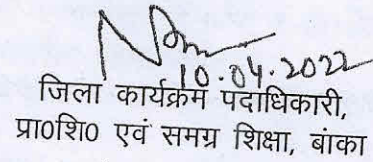 10.04.2022
जिला कार्यक्रम पदाधिकारी,
प्रा0शि0 एवं समग्र शिक्षा, बांका